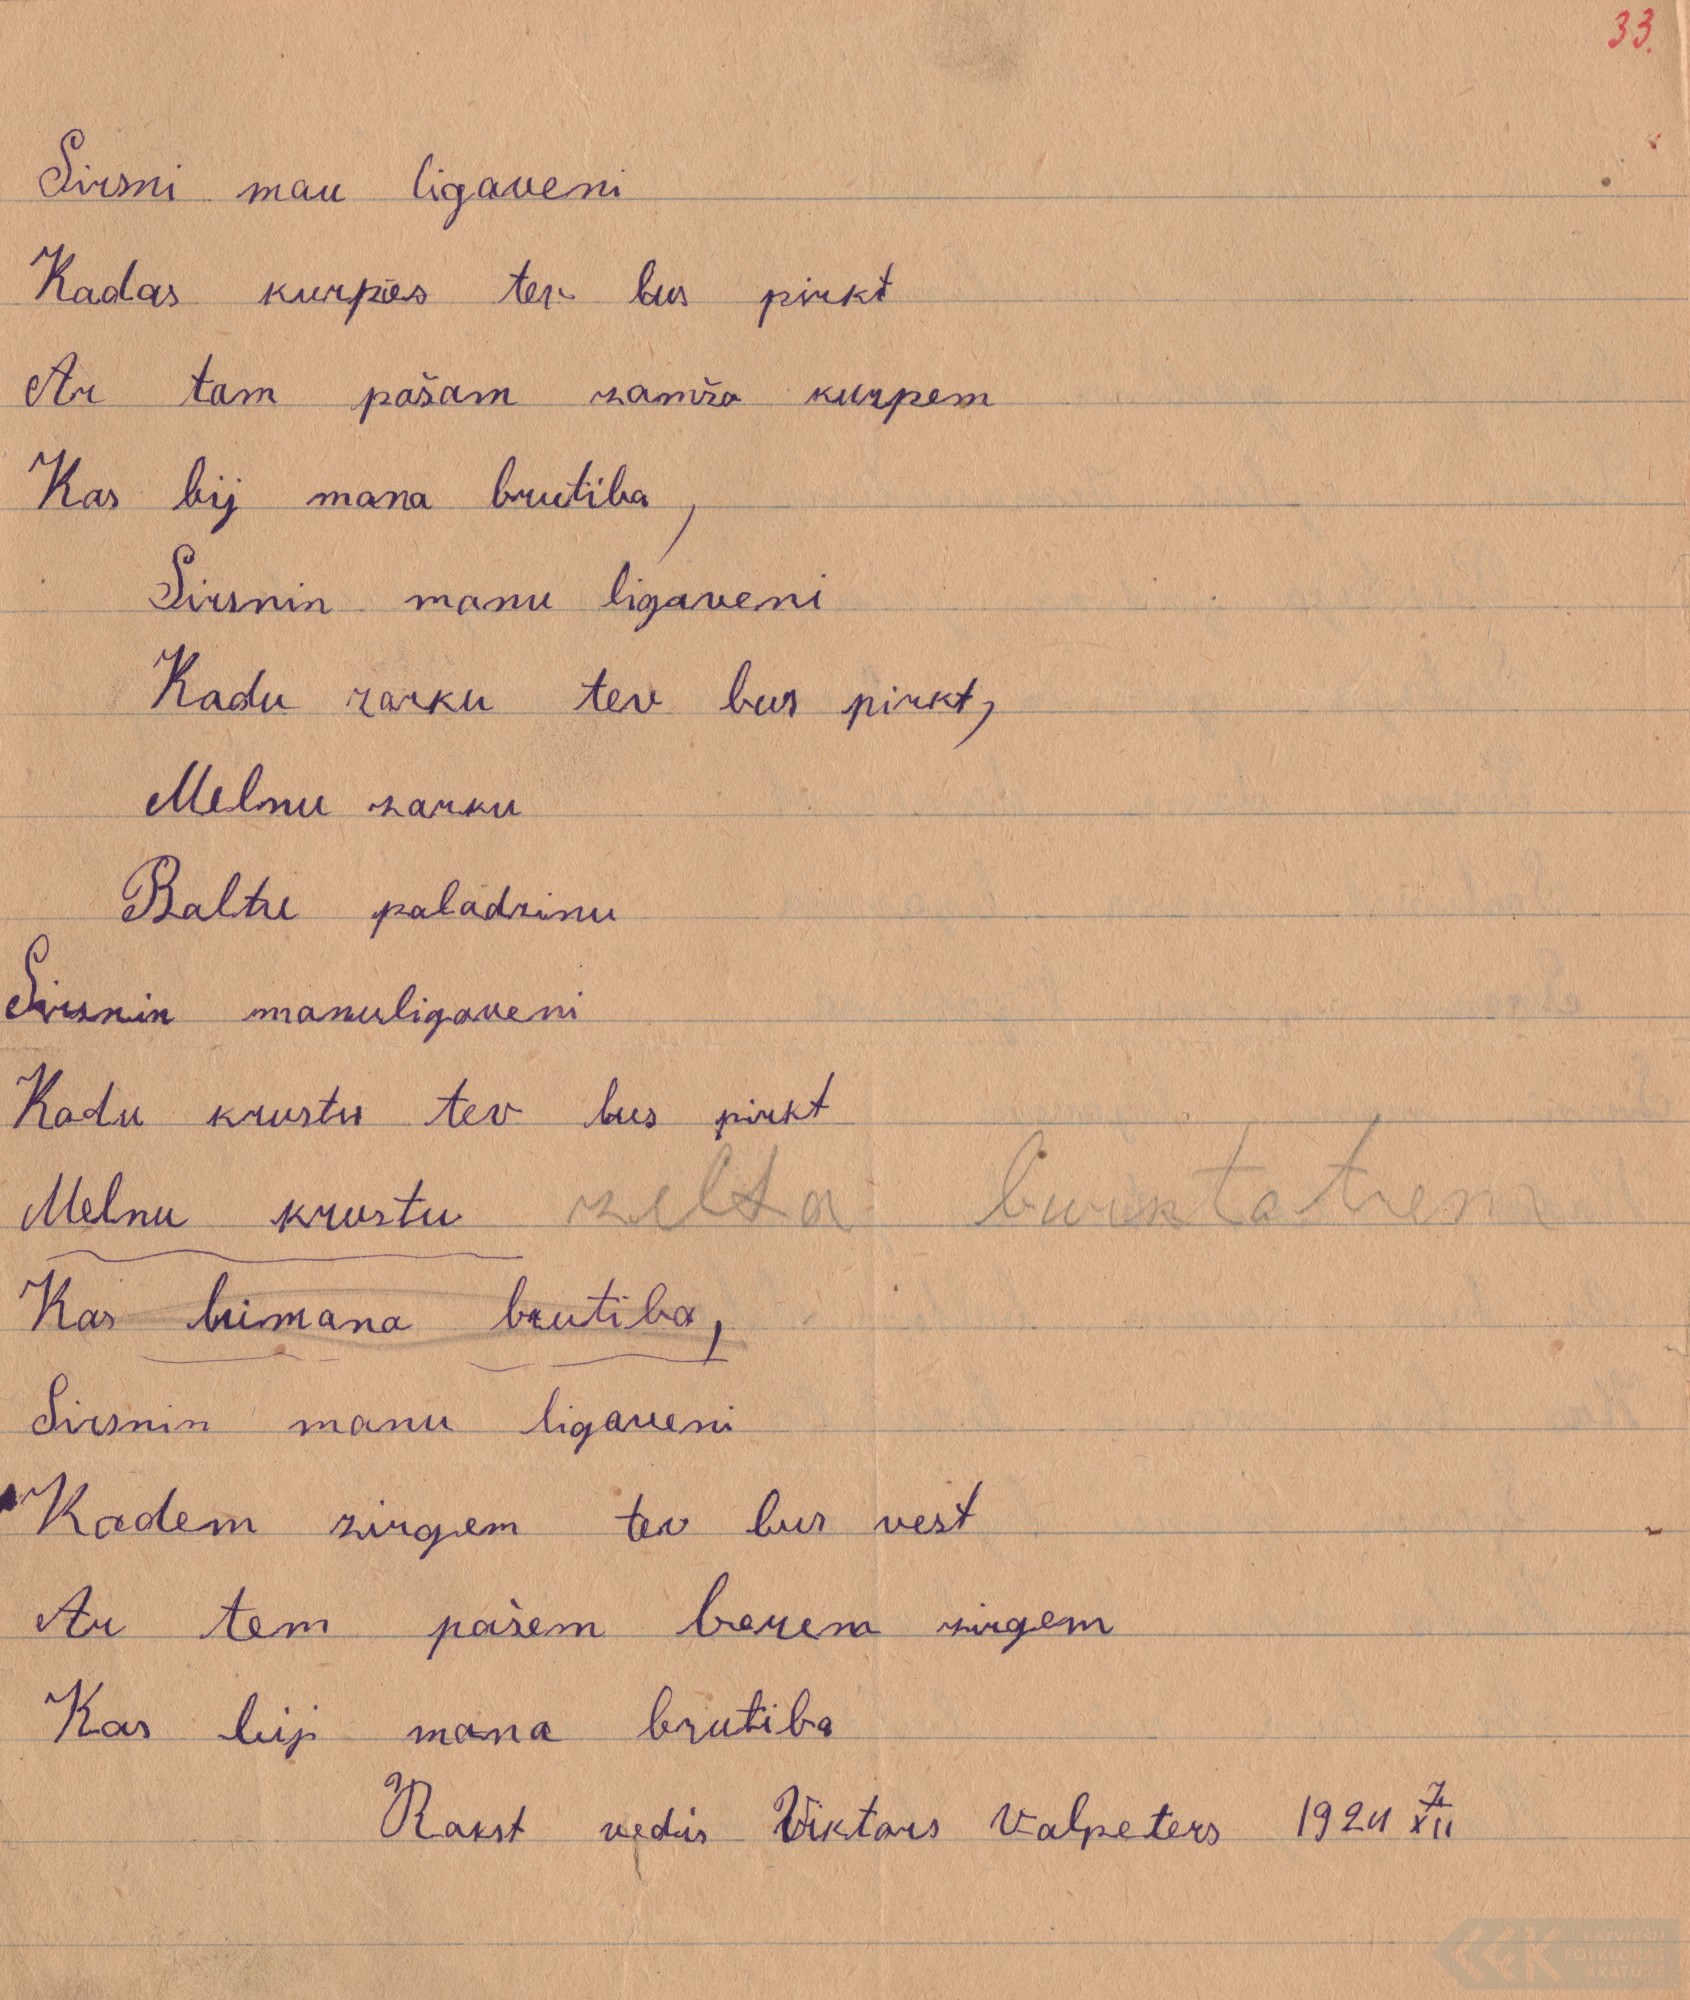 33.
Sirsni mau ligaveni
Kadas kurpēs tev bus pirkt
Ar tam pašam zamža kurpem
Kas bij mana brutiba,
Sirsnin manu ligaveni
Kadu zarku tev bus pirkt,
Melnu zarku
Baltu paladzinu
Sirsnin manuligaveni
Kadu krustu tev bus pirkt
Melnu krustu zelta burktatrem
Kas bimana brutiba,
Sirsnin manu ligaveni
Kadem zirgem tev bus vest
Ar tem pašem berem zirgem
Kas bij mana brutiba
Rakst vedis Viktars Valpeters 1924 7/XII
LATVIEŠU
FOLKLORAS
KRĀTUVE